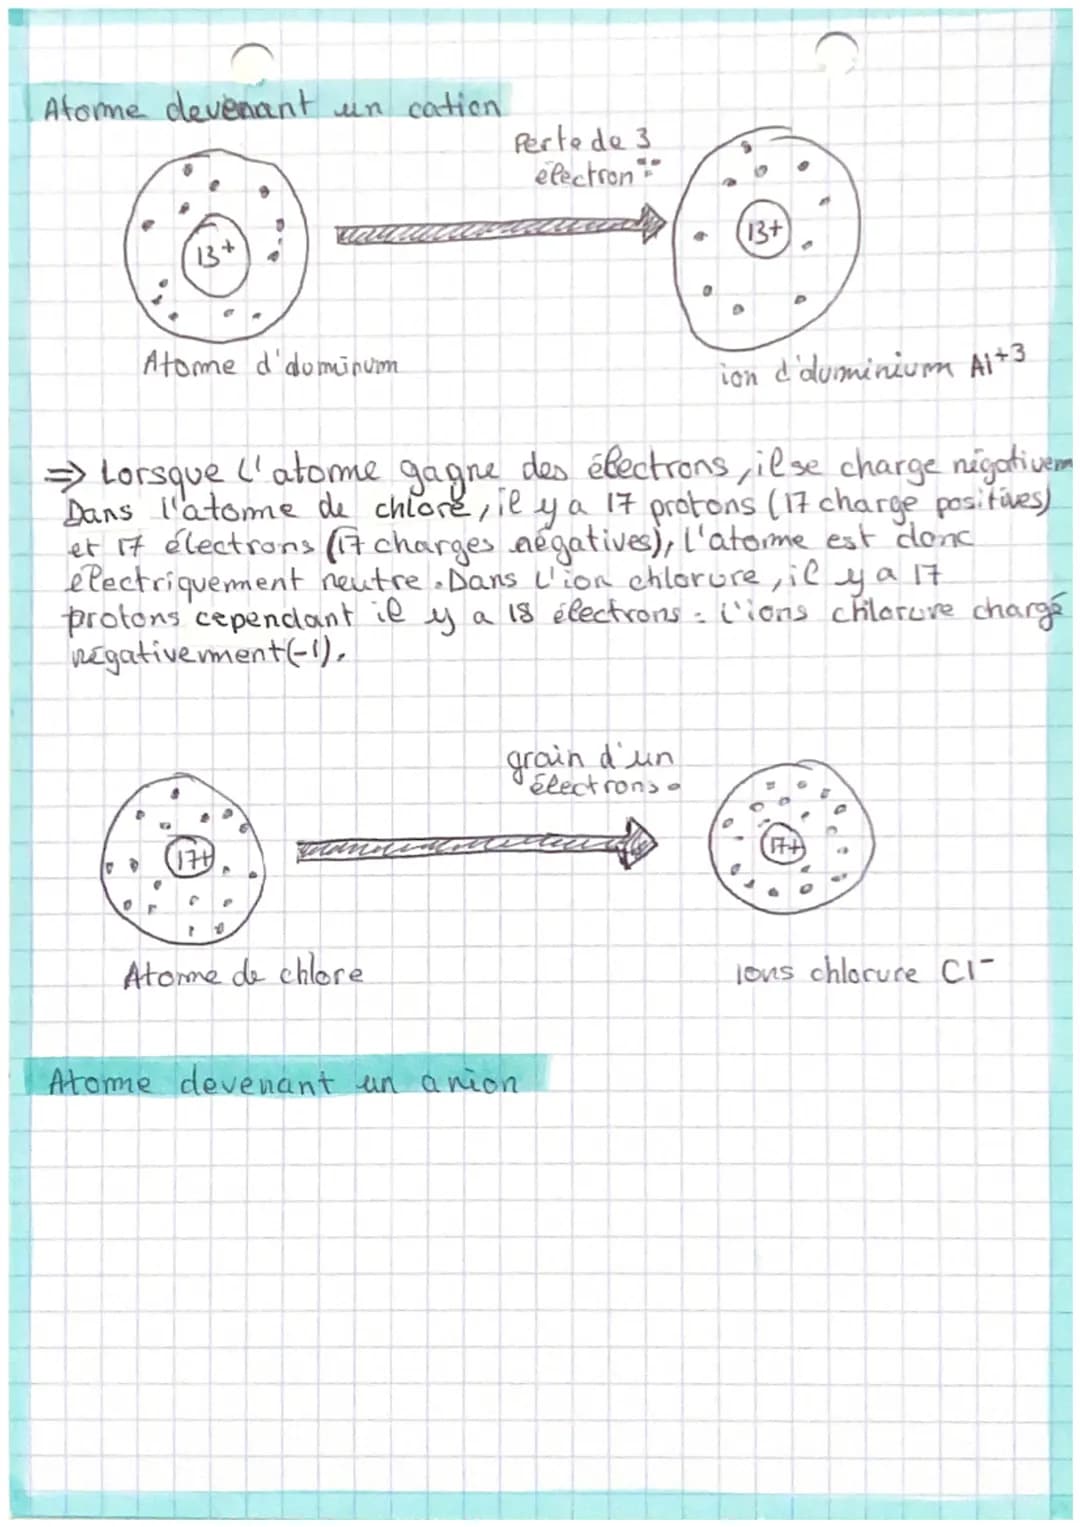 Atome devenant un cation
Perte de 3
électron
13+
13+
Atome d'aluminum
ion d'aluminium Al+3
=> Lorsque l'atome gagne des électrons, il se charge négativem
Dans l'atome de chlore, il y a 17 protons (17 charge positives)
et 17 électrons (17 charges négatives), l'atome est donc
électriquement neutre. Dans l'ion chlorure, il y a 17
protons cependant il y a 18 électrons : l'ions chlorure chargé
négativement (-1).
grain d'un
électrons
17+
17+
Atome de chlore
Ions chlorure Cl-
Atome devenant un anion